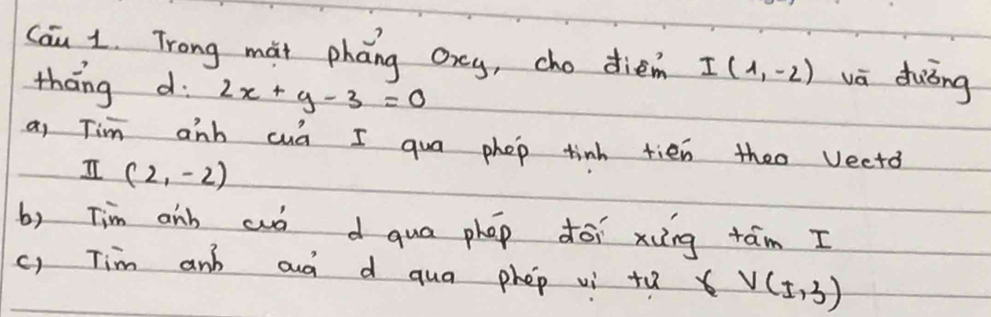 Câu 1. Trong mặt phẳng Oxy, cho điểm I(1,-2) và đường
thẳng d: 2x + y - 3 = 0
a, Tìm ảnh cuả I qua phép tịnh tiến theo Vectơ
II (2,-2)
b) Tìm ảnh cuả d qua phép đối xứng tâm I
c) Tìm ảnh cuả d qua phép vị tự V(I,3)